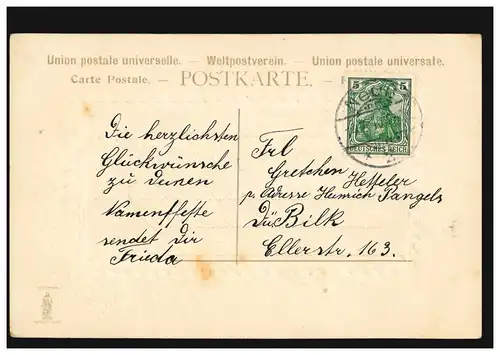 Union postale universelle. — Weltpostverein. — Union postale universale.
Carte Postale. — POSTKARTE. —
5 5
DEUTSCHES REICH
Die herzlichsten
Glückwünsche
zu deinem
Namensfeste
sendet dir
Frieda
Frl
Gretchen Hetteler
p. Adresse Heinrich Pangels
Dü Bilk
Ellerstr. 163.